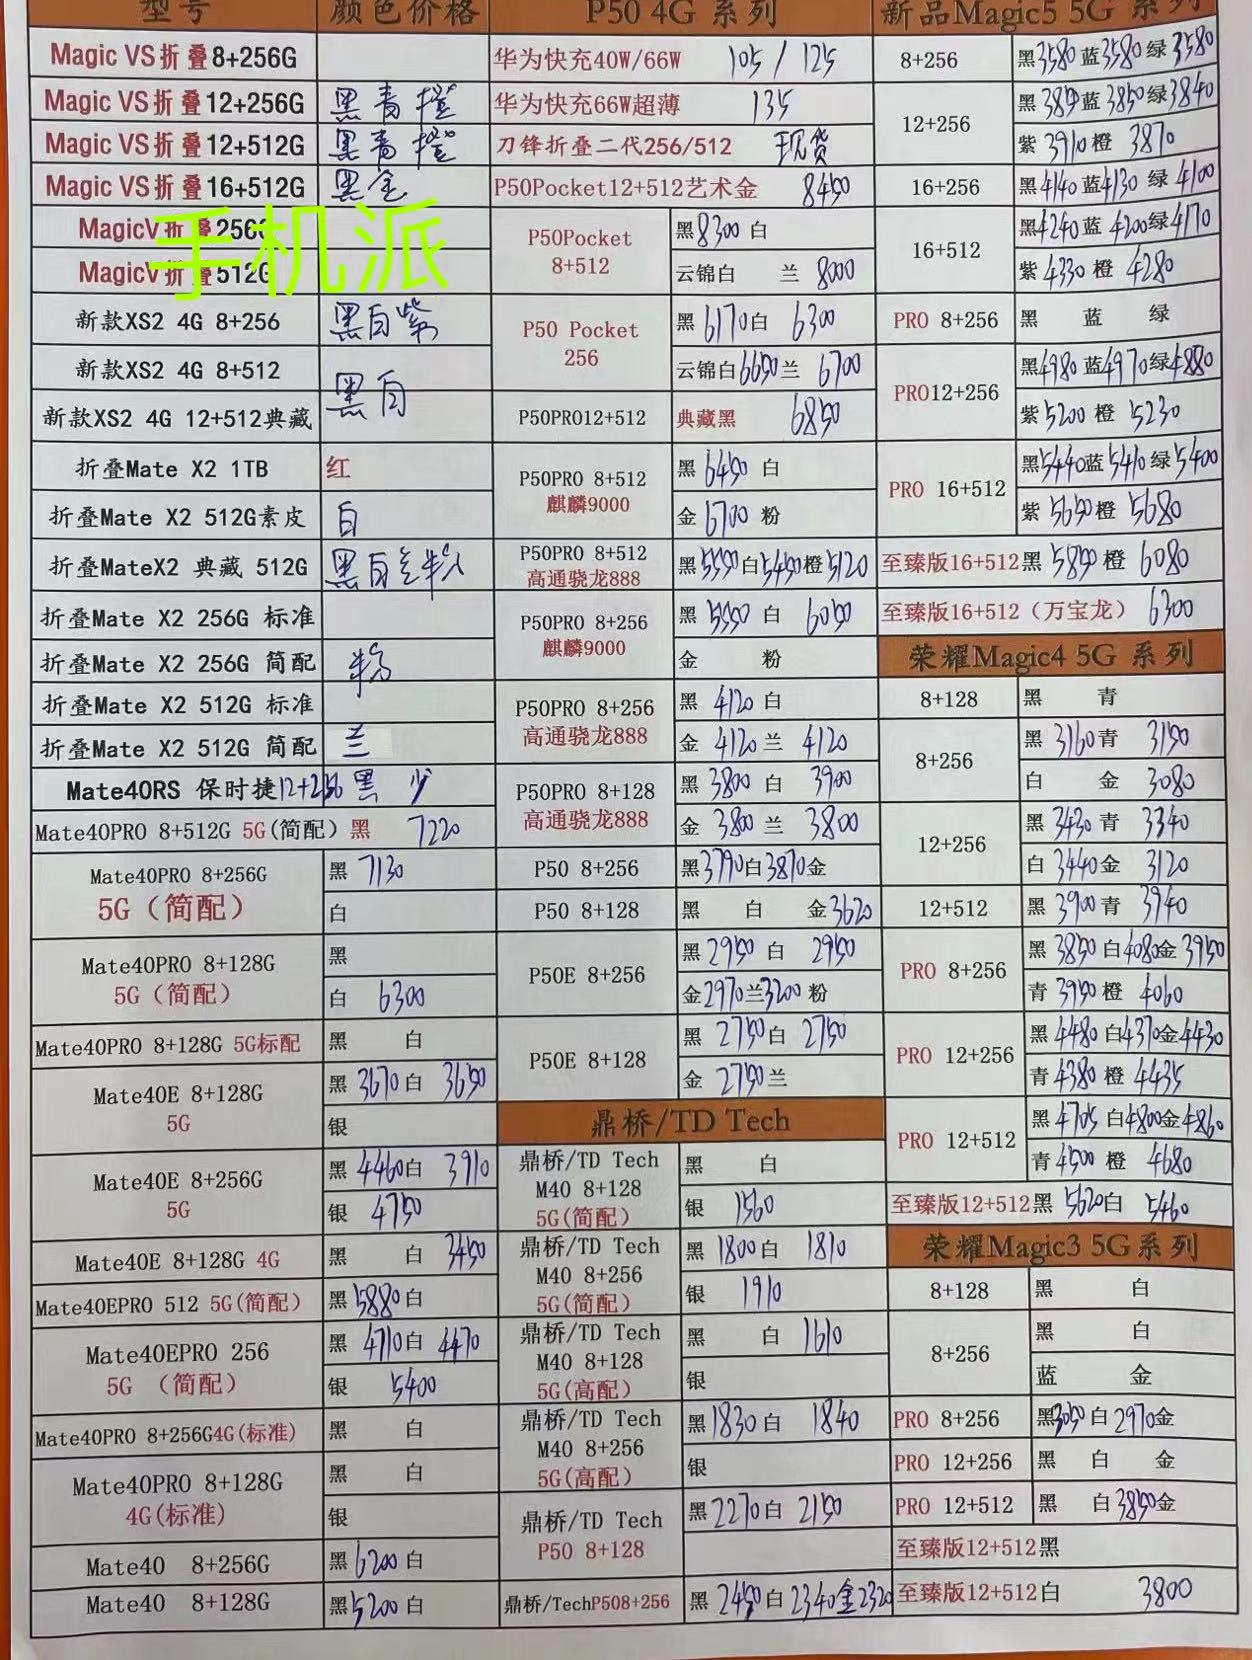 型号 颜色价格
Magic VS折叠8+256G
Magic VS折叠12+256G 黑 青 橙
Magic VS折叠12+512G 黑 青 橙
Magic VS折叠16+512G 黑 金
MagicV折叠256G
MagicV折叠512G
手机派
新款XS2 4G 8+256 黑白紫
新款XS2 4G 8+512
黑 白
新款XS2 4G 12+512典藏
折叠Mate X2 1TB 红
折叠Mate X2 512G素皮 白
折叠MateX2 典藏 512G 黑白
折叠Mate X2 256G 标准
折叠Mate X2 256G 简配
折叠Mate X2 512G 标准
折叠Mate X2 512G 简配 兰
Mate40RS 保时捷12+256 黑
Mate40PRO 8+512G 5G(简配) 黑 7220
Mate40PRO 8+256G 黑 7130
5G(简配) 白
Mate40PRO 8+128G 黑
5G(简配) 白 6300
Mate40PRO 8+128G 5G标配 黑 白
Mate40E 8+128G 黑 3670 白 3650
5G 银
Mate40E 8+256G 黑 4460白 3910
5G 银 4750
Mate40E 8+128G 4G 黑 白 3450
Mate40EPRO 512 5G(简配) 黑5880白
Mate40EPRO 256 黑 4710白 4470
5G (简配) 银 5400
Mate40PRO 8+256G4G(标准) 黑 白
Mate40PRO 8+128G 黑 白
4G(标准) 银
Mate40 8+256G 黑6200白
Mate40 8+128G 黑5200白
P50 4G 系列
华为快充40W/66W 105 / 125
华为快充66W超薄 135
刀锋折叠二代256/512 现货
P50Pocket12+512艺术金 8450
P50Pocket 黑8300 白
8+512 云锦白 兰 8000
P50 Pocket 黑 6170白 6300
256 云锦白6650兰 6700
P50PRO12+512 典藏黑 6850
P50PRO 8+512 黑 6450 白
麒麟9000 金 6700 粉
P50PRO 8+512 黑5550白5450橙5120
高通骁龙888
P50PRO 8+256 黑 5550 白 6050
麒麟9000 金 粉
P50PRO 8+256 黑 4120 白
高通骁龙888 金 4120 兰 4120
P50PRO 8+128 黑 3800 白 3900
高通骁龙888 金 3800 兰 3800
P50 8+256 黑3790白3870金
P50 8+128 黑 白 金3620
P50E 8+256 黑 2950 白 2950
金2970兰3200 粉
P50E 8+128 黑 2750白 2750
金 2750兰
鼎桥/TD Tech
鼎桥/TD Tech 黑 白
M40 8+128
5G(简配) 银 1560
鼎桥/TD Tech 黑 1800白 1810
M40 8+256
5G(简配) 银 1910
鼎桥/TD Tech 黑 白 1610
M40 8+128
5G(高配) 银
鼎桥/TD Tech 黑1830白 1840
M40 8+256
5G(高配) 银
鼎桥/TD Tech 黑 2270白 2150
P50 8+128
鼎桥/TechP508+256 黑 2450白2340金2320
新品Magic5 5G 系列
8+256 黑3580蓝3580绿3580
12+256 黑 3850蓝 3850绿3840
紫 3910 橙 3870
16+256 黑4140蓝4130 绿 4100
16+512 黑4240蓝 4200绿4170
紫 4330 橙 4280
PRO 8+256 黑 蓝 绿
PRO12+256 黑4980蓝4970绿4880
紫 5200 橙 5230
PRO 16+512 黑5440蓝5410绿5400
紫 5650橙 5680
至臻版16+512黑 5850 橙 6080
至臻版16+512(万宝龙) 6300
荣耀Magic4 5G 系列
8+128 黑 青
8+256 黑 3160青 3150
白 金 3080
12+256 黑 3430青 3340
白 3440金 3120
12+512 黑 3900青 3940
PRO 8+256 黑 3850 白4080金 3950
青 3950橙 4060
PRO 12+256 黑 4480 白4370金4430
青4380 橙 4435
PRO 12+512 黑 4705 白4800金4860
青4500 橙 4680
至臻版12+512黑 5620白 5460
荣耀Magic3 5G系列
8+128 黑 白
8+256 黑 白
蓝 金
PRO 8+256 黑3050白 2970金
PRO 12+256 黑 白 金
PRO 12+512 黑 白3850金
至臻版12+512黑
至臻版12+512白 3800